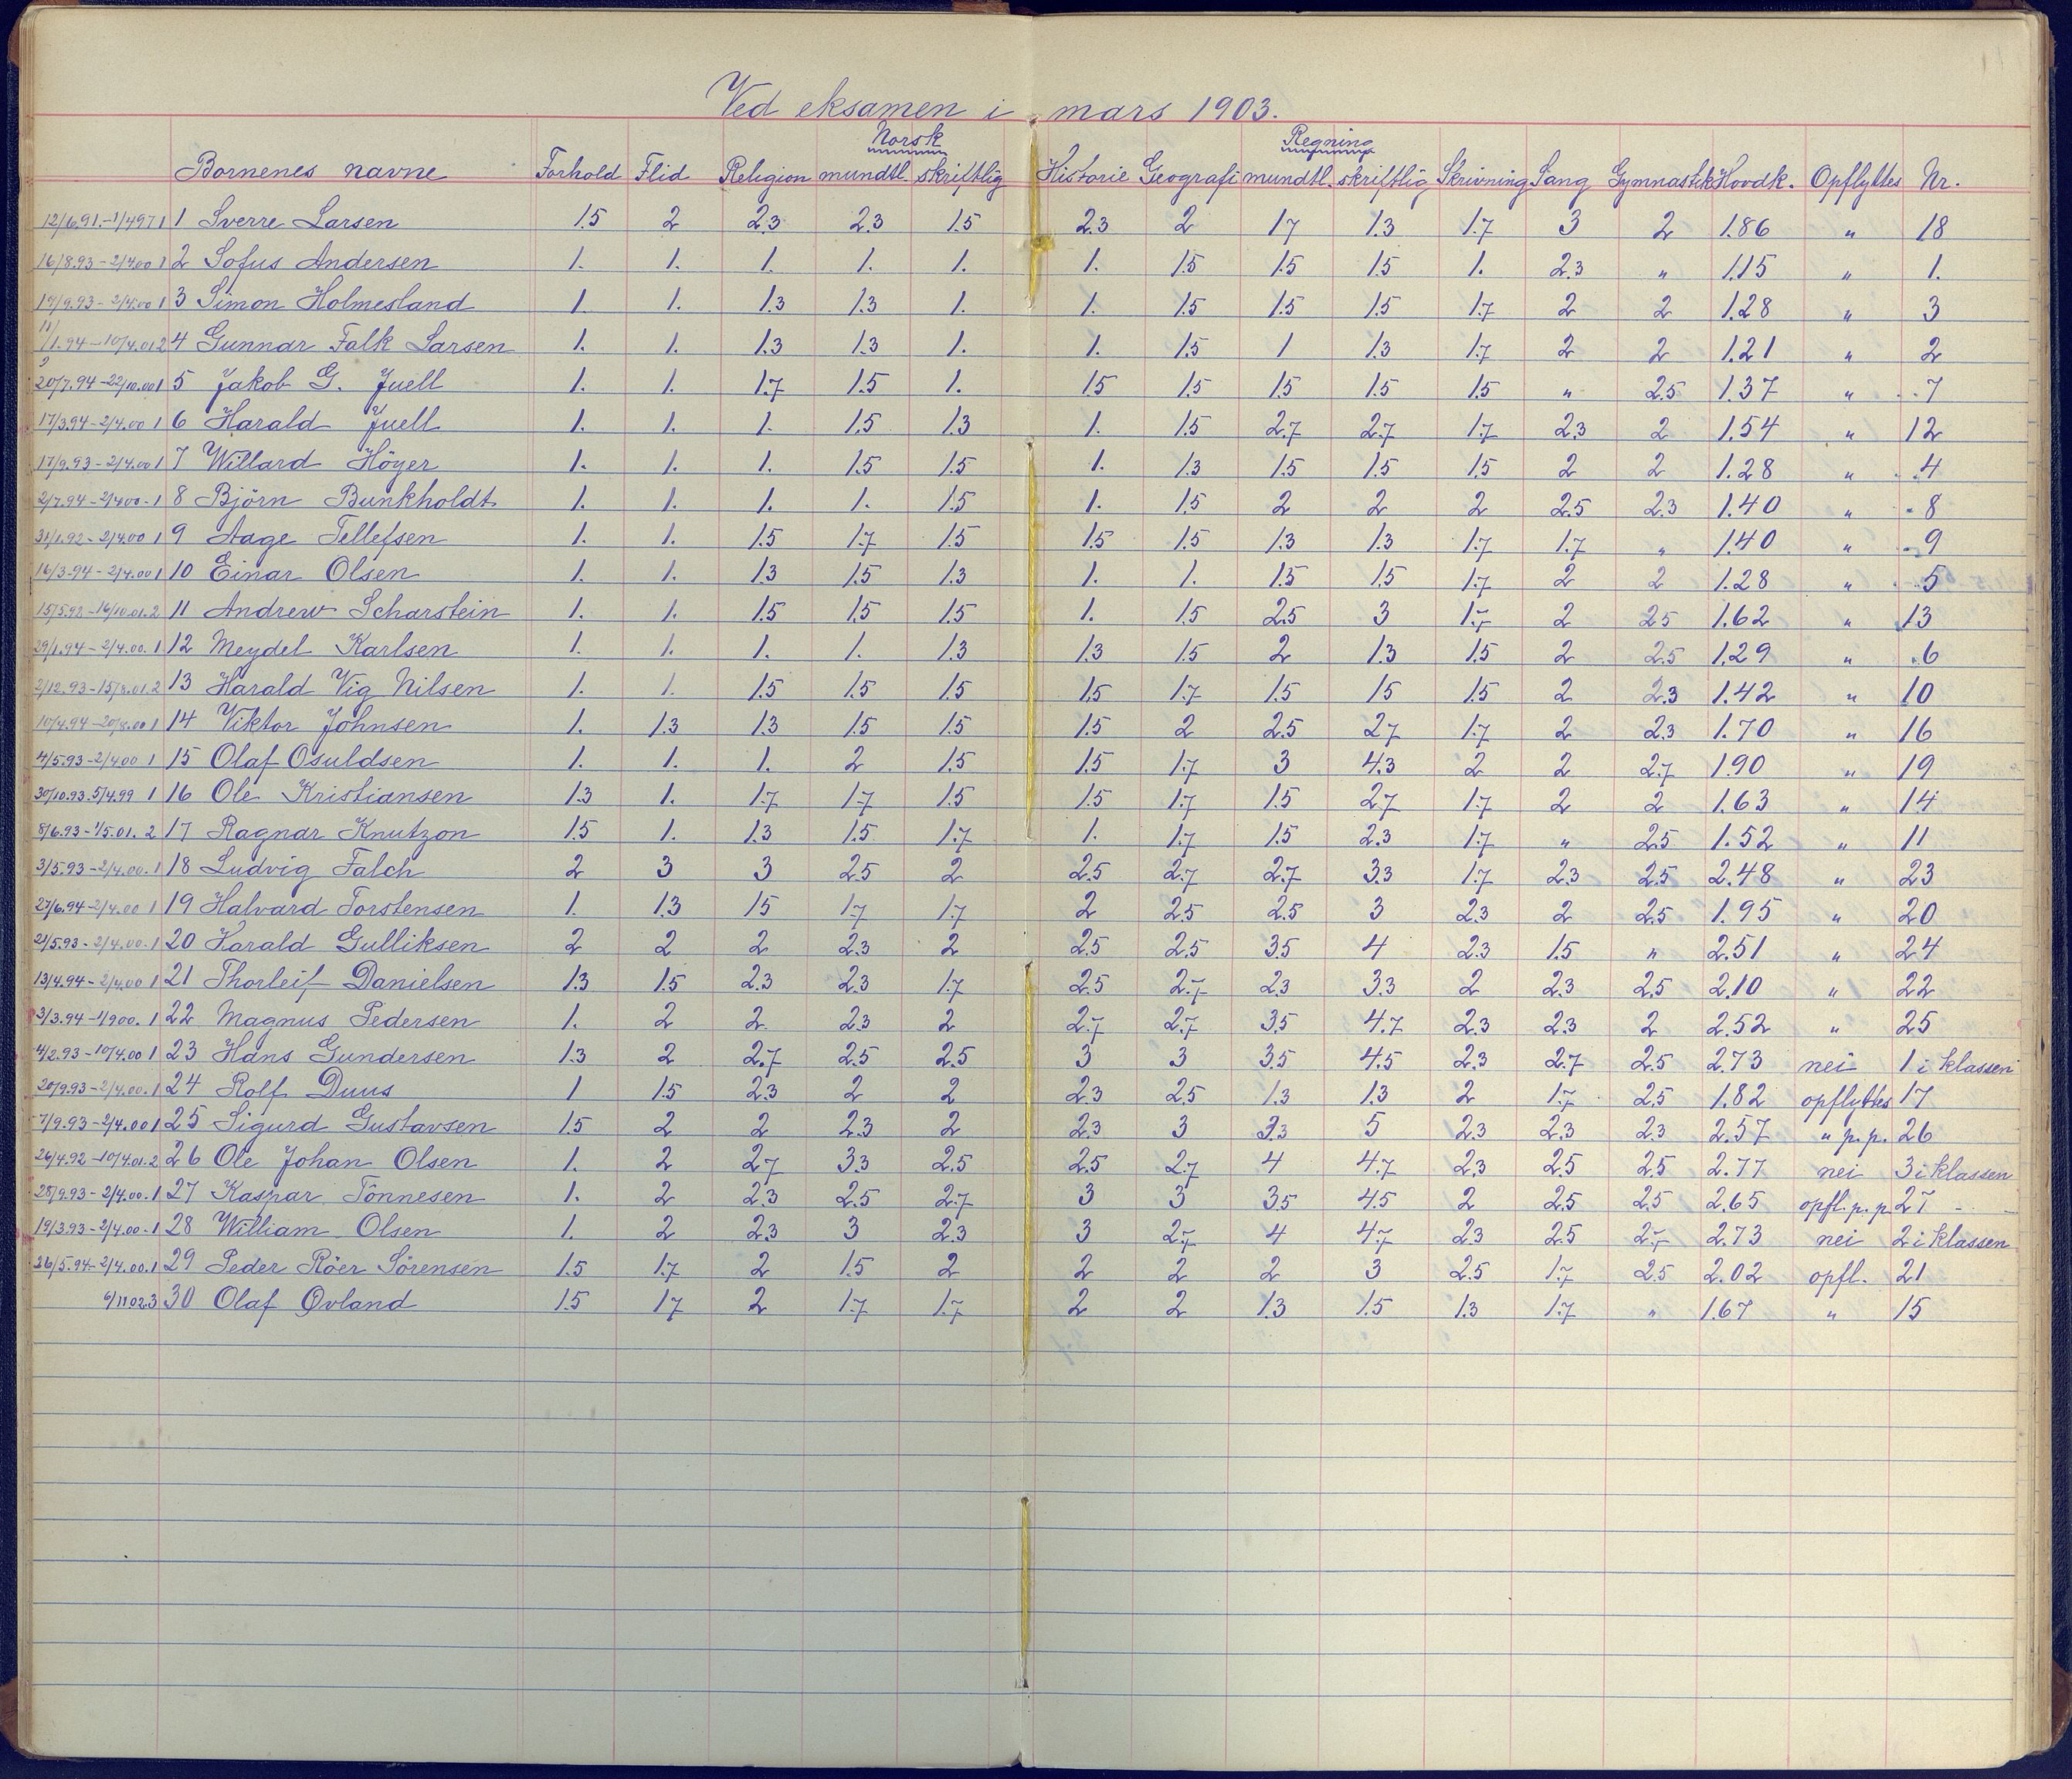 Ved eksamen i mars 1903.
Norsk Regning
Bornenes navne Forhold Flid Religion mundtl. skriftlig Historie Geografi mundtl. skriftlig Skrivning Sang Gymnastik Hovdk. Opflyttes Nr.
12/6.91.-1/4971 1 Sverre Larsen 1.5 2 2.3 2.3 1.5 2.3 2 1.7 1.3 1.7 3 2 1.86 " 18
16/8.93-2/4.00 1 2 Sofus Andersen 1. 1. 1. 1. 1. 1. 1.5 1.5 1.5 1. 2.3 " 1.15 " 1.
17/9.93-2/4.00 1 3 Simon Holmesland 1. 1. 1.3 1.3 1. 1. 1.5 1.5 1.5 1.7 2 2 1.28 " 3
11/1.94-10/4.01.2 4 Gunnar Falk Larsen 1. 1. 1.3 1.3 1. 1. 1.5 1 1.3 1.7 2 2 1.21 " 2
20/7.94-22/10.00 1 5 Jakob G. Juell 1. 1. 1.7 1.5 1. 1.5 1.5 1.5 1.5 1.5 " 2.5 1.37 " 7
17/3.94-2/4.00 1 6 Harald Juell 1. 1. 1. 1.5 1.3 1. 1.5 2.7 2.7 1.7 2.3 2 1.54 " 12
17/9.93-2/4.00 1 7 Willard Höyer 1. 1. 1. 1.5 1.5 1. 1.3 1.5 1.5 1.5 2 2 1.28 " 4
2/7.94-2/4.00-1 8 Björn Bunkholdt 1. 1. 1. 1. 1.5 1. 1.5 2 2 2 2.5 2.3 1.40 " 8
31/1.92-2/4.00 1 9 Aage Tellefsen 1. 1. 1.5 1.7 1.5 1.5 1.5 1.3 1.3 1.7 1.7 " 1.40 " 9
16/3.94-2/4.00 1 10 Einar Olsen 1. 1. 1.3 1.5 1.3 1. 1. 1.5 1.5 1.7 2 2 1.28 " 5
15/5.92-16/10.01.2 11 Andrew Scharstein 1. 1. 1.5 1.5 1.5 1. 1.5 2.5 3 1.7 2 2.5 1.62 " 13
29/1.94-2/4.00.1 12 Meydel Karlsen 1. 1. 1. 1. 1.3 1.3 1.5 2 1.3 1.5 2 2.5 1.29 " 6
2/12.93-15/8.01.2 13 Harald Vig Nilsen 1. 1. 1.5 1.5 1.5 1.5 1.7 1.5 1.5 1.5 2 2.3 1.42 " 10
10/4.94-20/8.00 1 14 Viktor Johnsen 1. 1.3 1.3 1.5 1.5 1.5 2 2.5 2.7 1.7 2 2.3 1.70 " 16
4/5.93-2/4.00 1 15 Olaf Osuldsen 1. 1. 1. 2 1.5 1.5 1.7 3 4.3 2 2 2.7 1.90 " 19
30/10.93.5/4.99 1 16 Ole Kristiansen 1.3 1. 1.7 1.7 1.5 1.5 1.7 1.5 2.7 1.7 2 2 1.63 " 14
8/6.93-1/5.01.2 17 Ragnar Knutzon 1.5 1. 1.3 1.5 1.7 1. 1.7 1.5 2.3 1.7 " 2.5 1.52 " 11
3/5.93-2/4.00.1 18 Ludvig Falch 2 3 3 2.5 2 2.5 2.7 2.7 3.3 1.7 2.3 2.5 2.48 " 23
27/6.94-2/4.00 1 19 Halvard Torstensen 1. 1.3 1.5 1.7 1.7 2 2.5 2.5 3 2.3 2 2.5 1.95 " 20
2/5.93-2/4.00.1 20 Harald Gulliksen 2 2 2 2.3 2 2.5 2.5 3.5 4 2.3 1.5 " 2.51 " 24
13/4.94-2/4.00 1 21 Thorleif Danielsen 1.3 1.5 2.3 2.3 1.7 2.5 2.7 2.3 3.3 2 2.3 2.5 2.10 " 22
3/3.94-1/900.1 22 Magnus Pedersen 1. 2 2 2.3 2 2.7 2.7 3.5 4.7 2.3 2.3 2 2.52 " 25
4/2.93-10/4.00 1 23 Hans Gundersen 1.3 2 2.7 2.5 2.5 3 3 3.5 4.5 2.3 2.7 2.5 2.73 nei 1 i klassen
20/9.93-2/4.00.1 24 Rolf Duus 1 1.5 2.3 2 2 2.3 2.5 1.3 1.3 2 1.7 2.5 1.82 opflyttes 17
7/9.93-2/4.00 1 25 Sigurd Gustavsen 1.5 2 2 2.3 2 2.3 3 3.3 5 2.3 2.3 2.3 2.57 " p.p. 26
26/4.92-10/4.01.2 26 Ole Johan Olsen 1. 2 2.7 3.3 2.5 2.5 2.7 4 4.7 2.3 2.5 2.5 2.77 nei 3 i klassen
28/9.93-2/4.00.1 27 Kaspar Tönnesen 1. 2 2.3 2.5 2.7 3 3 3.5 4.5 2 2.5 2.5 2.65 opfl. p. p 27
19/3.93-2/4.00-1 28 William Olsen 1. 2 2.3 3 2.3 3 2.7 4 4.7 2.3 2.5 2.7 2.73 nei 2 i klassen
26/5.94-2/4.00.1 29 Peder Röer Sörensen 1.5 1.7 2 1.5 2 2 2 2 3 2.5 1.7 2.5 2.02 opfl. 21
6/11 02.3 30 Olaf Øvland 1.5 1.7 2 1.7 1.7 2 2 1.3 1.5 1.3 1.7 " 1.67 " 15